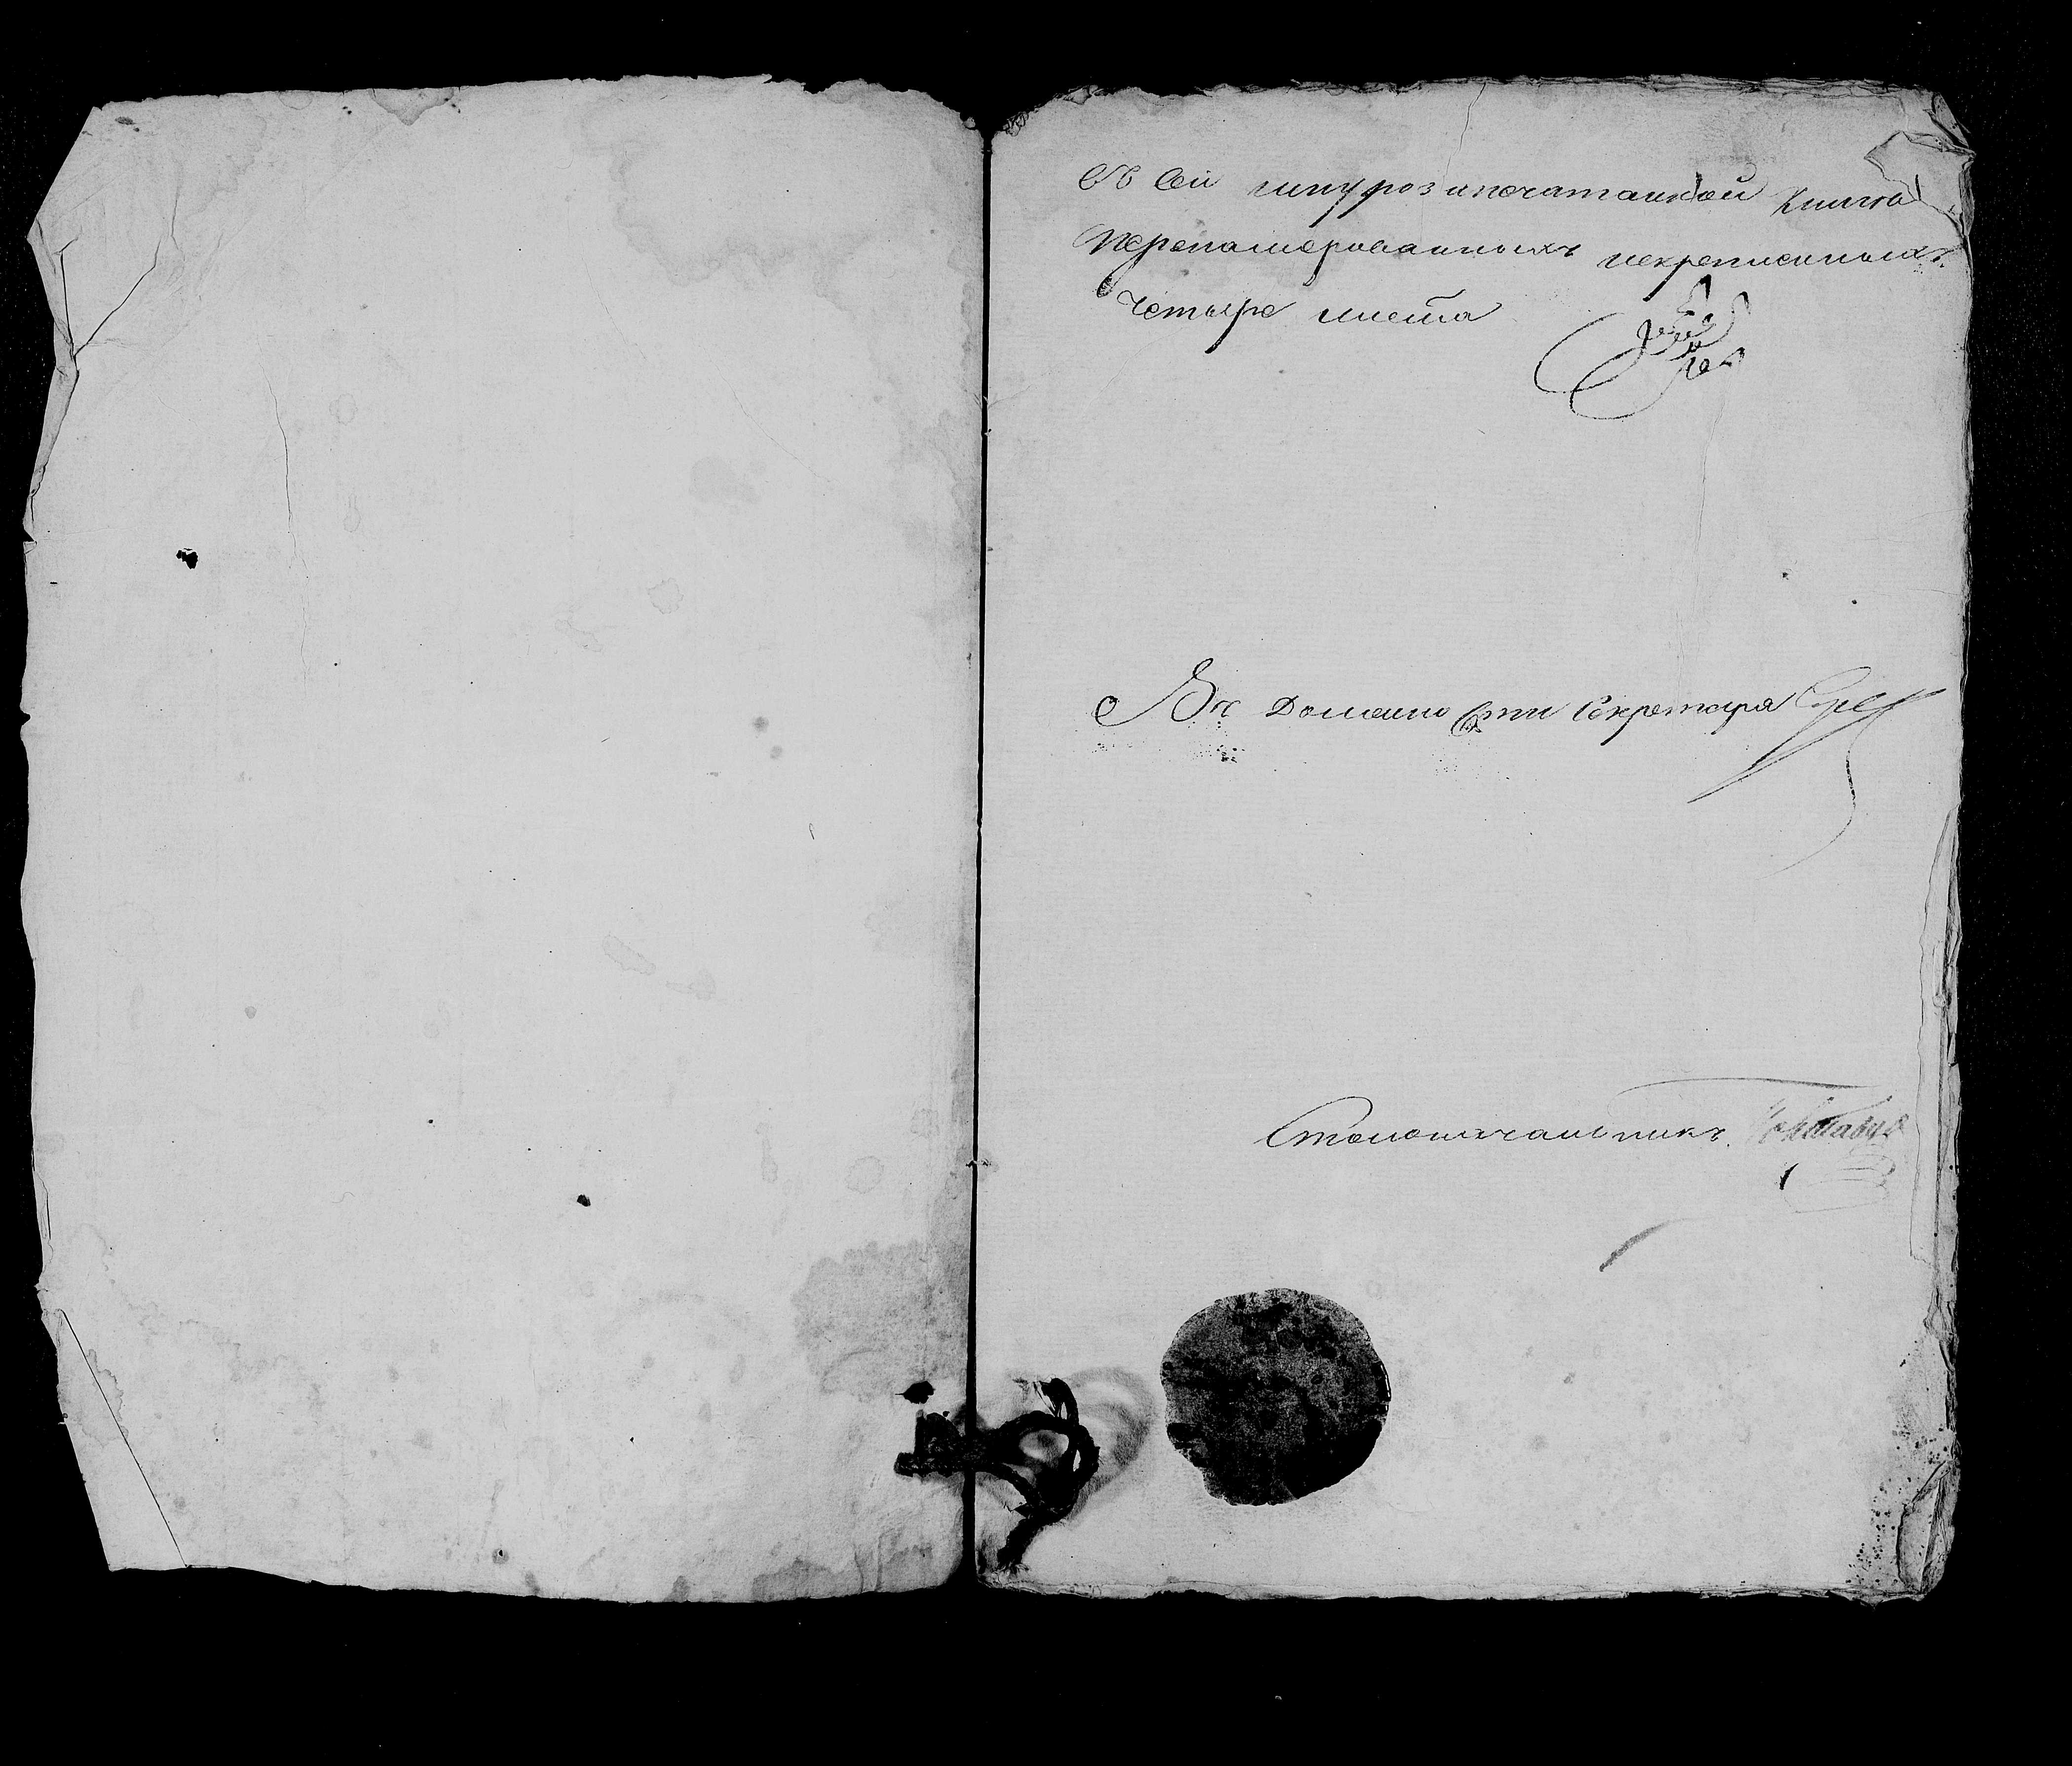 Въ сей шнурозапечатанной книгѣ
перепомерованныхъ искрепленныхъ
четыре листа
Въ Должности Секретаря
Столоначальникъ